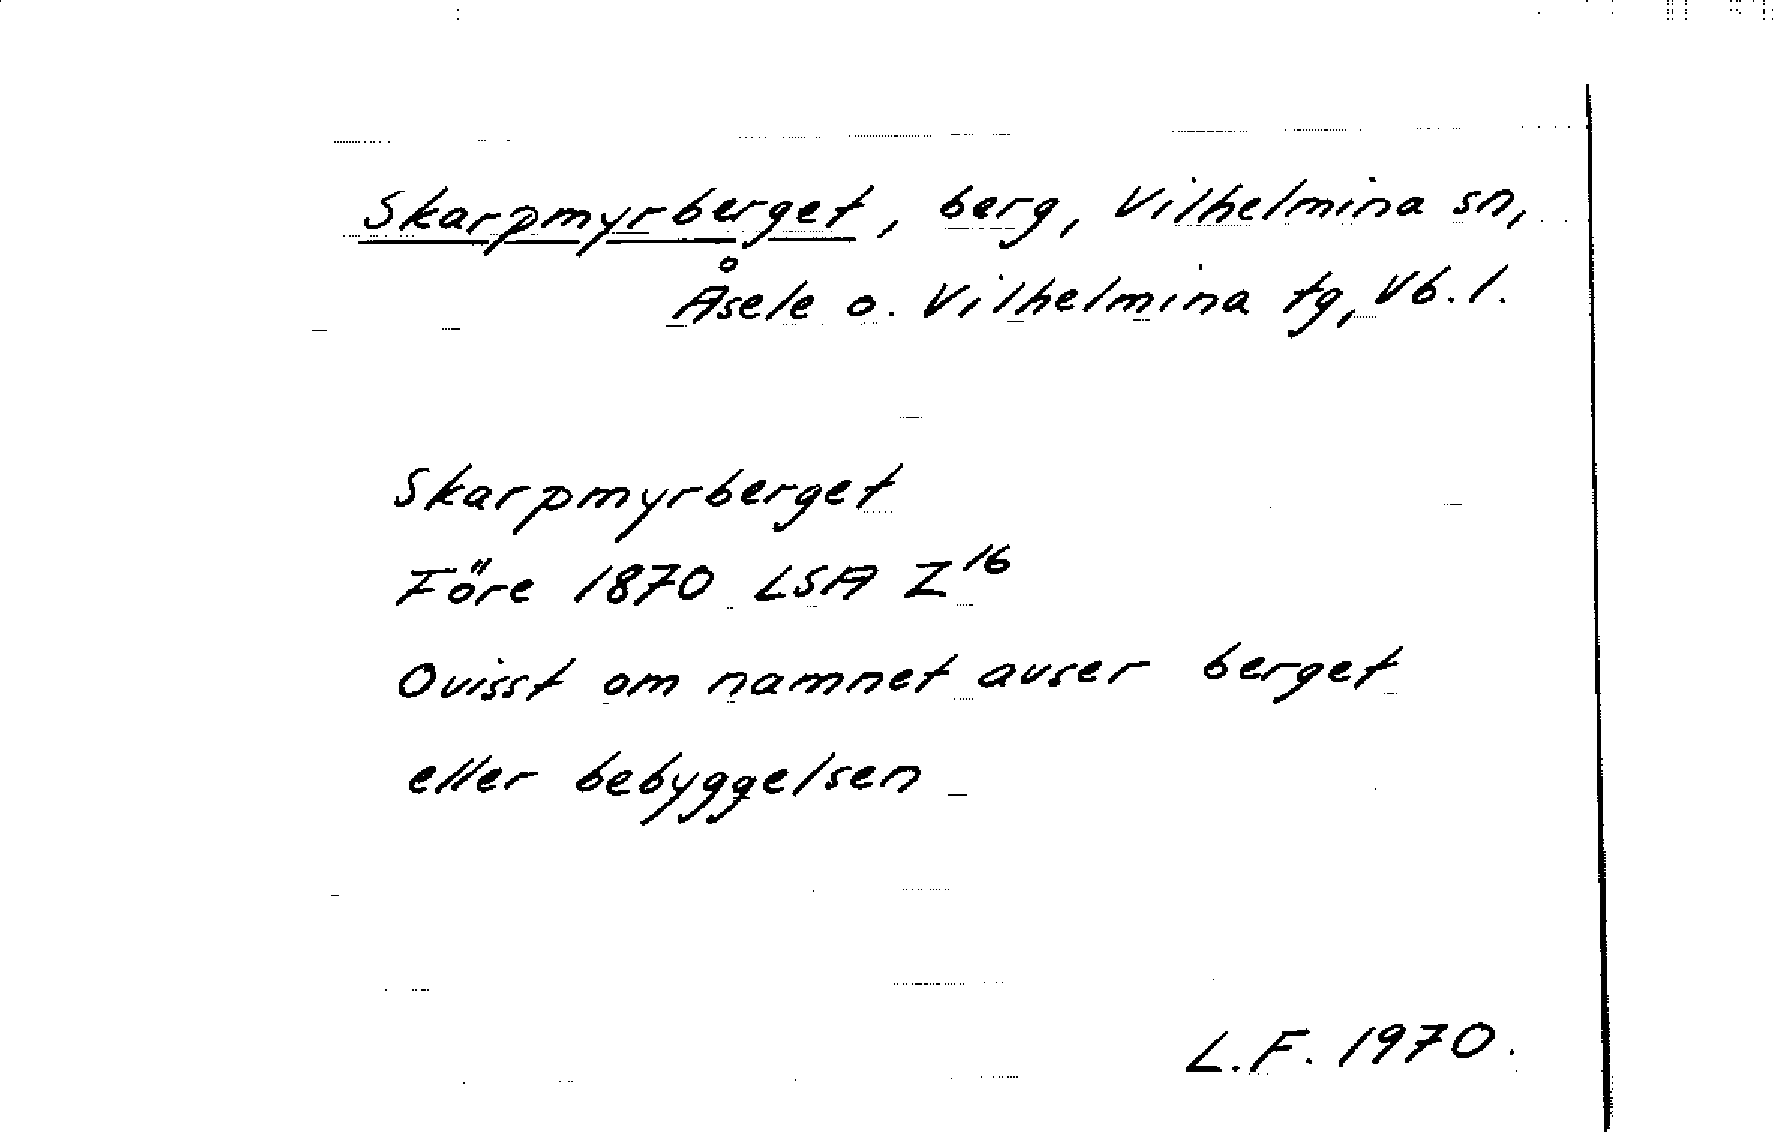 Skarpmyrberget, berg, Vilhelmina sn,
Åsele o. Vilhelmina tg, Vb. l.
Skarpmyrberget
Före 1870 LSA Z¹⁶
Ovisst om namnet avser berget
eller bebyggelsen
L.F. 1970.